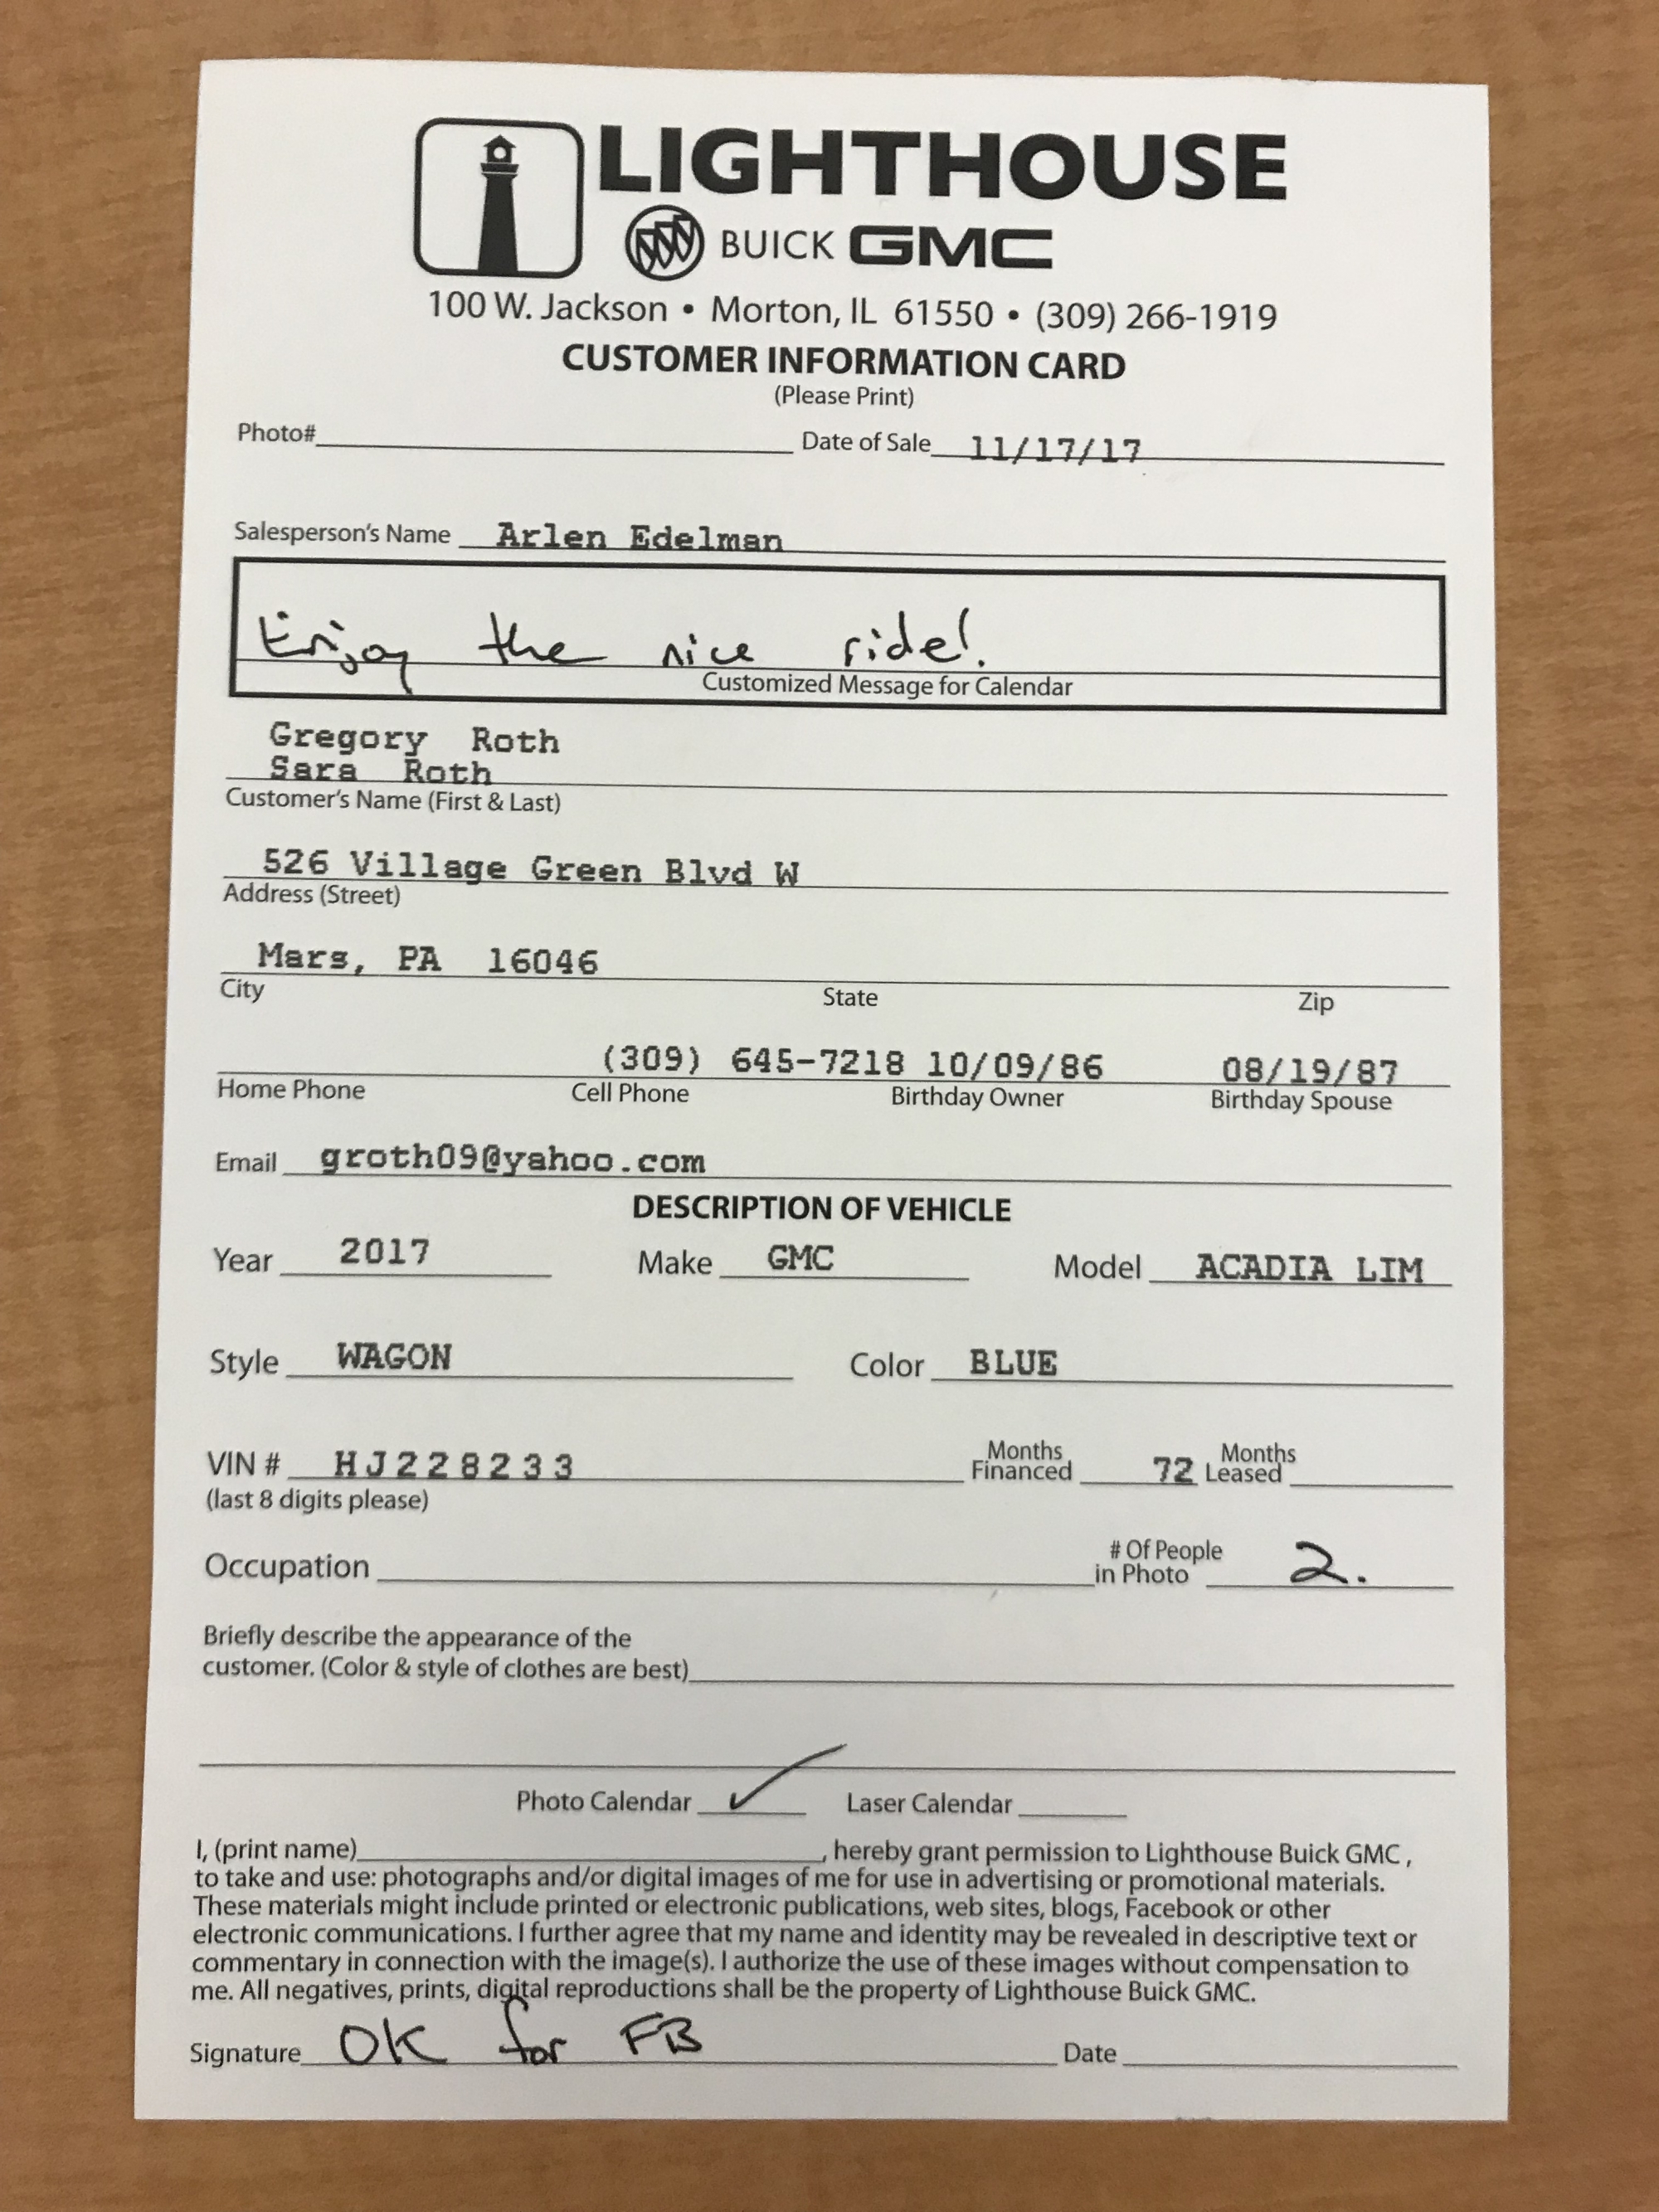 LIGHTHOUSE
BUICK GMC
100 W. Jackson • Morton, IL 61550 • (309) 266-1919
CUSTOMER INFORMATION CARD
(Please Print)
Photo# Date of Sale 11/17/17
Salesperson's Name Arlen Edelman
Enjoy the nice ride!
Customized Message for Calendar
Gregory Roth
Sara Roth
Customer's Name (First & Last)
526 Village Green Blvd W
Address (Street)
Mars, PA 16046
City State Zip
(309) 645-7218 10/09/86 08/19/87
Home Phone Cell Phone Birthday Owner Birthday Spouse
Email groth09@yahoo.com
DESCRIPTION OF VEHICLE
Year 2017 Make GMC Model ACADIA LIM
Style WAGON Color BLUE
VIN # HJ228233 Months Financed 72 Months Leased
(last 8 digits please)
Occupation # Of People in Photo 2.
Briefly describe the appearance of the
customer. (Color & style of clothes are best)
Photo Calendar ✓ Laser Calendar
I, (print name) , hereby grant permission to Lighthouse Buick GMC,
to take and use: photographs and/or digital images of me for use in advertising or promotional materials.
These materials might include printed or electronic publications, web sites, blogs, Facebook or other
electronic communications. I further agree that my name and identity may be revealed in descriptive text or
commentary in connection with the image(s). I authorize the use of these images without compensation to
me. All negatives, prints, digital reproductions shall be the property of Lighthouse Buick GMC.
Signature OK for FB Date